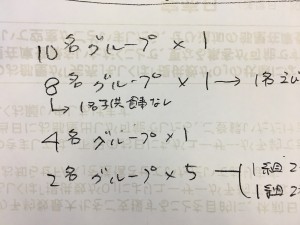 10名グループ × 1
8名グループ × 1 → 1名えび
↳ 1名子供食事なし
4名グループ × 1
2名グループ × 5
1組
1組